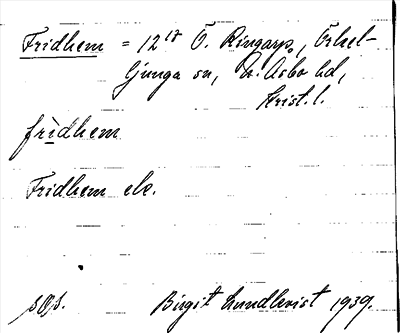 Fridhem = 12¹⁷ Ö. Ringarp, Örkel-
ljunga sn, N. Åsbo hd,
Krist. l.
frìdhem
Fridhem ele.
Birgit Lundkvist 1939.